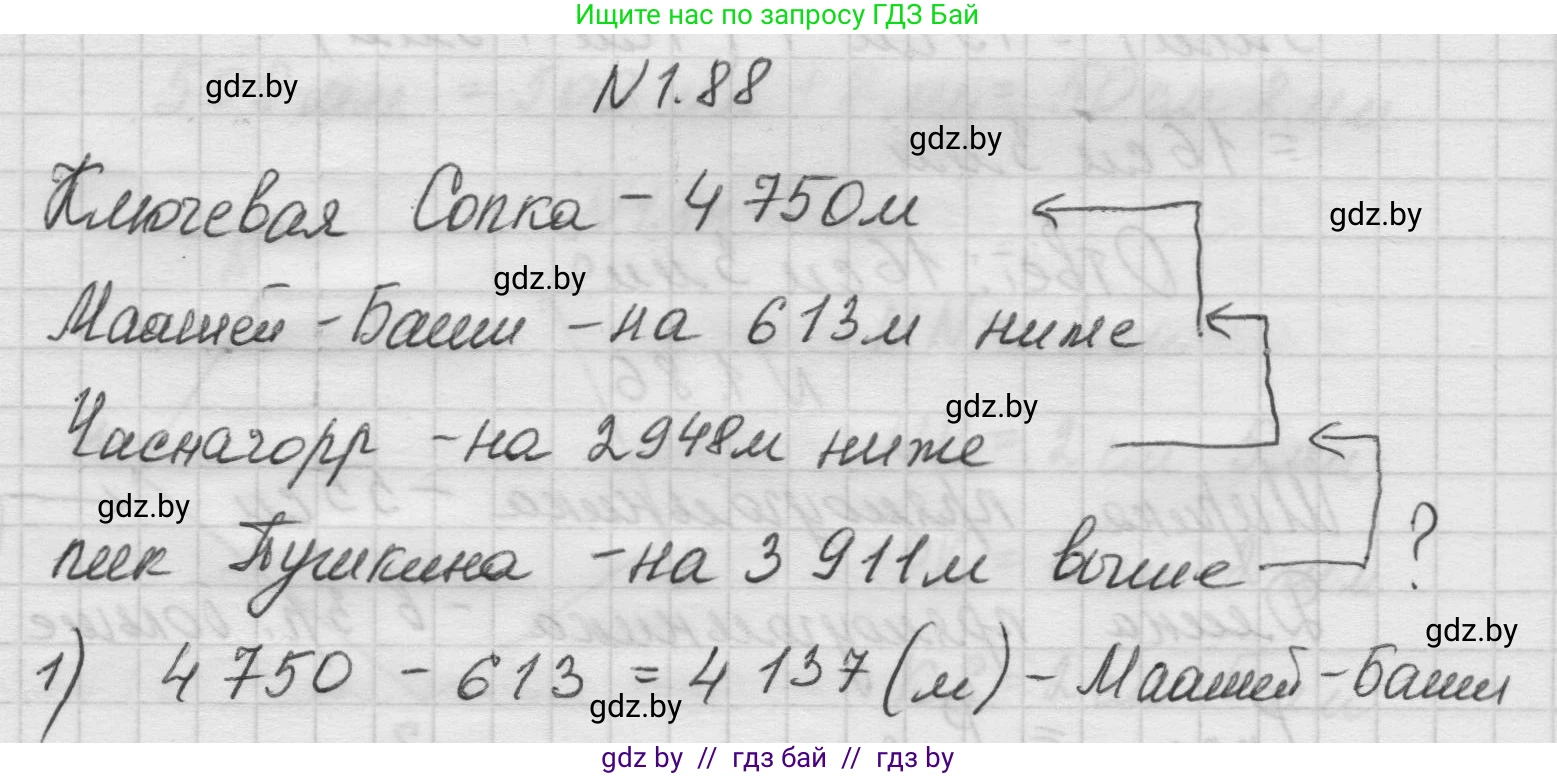 Ищите нас по запросу ГДЗ Бай
gdz.by
N 1.88
gdz.by
Ключевая Сопка - 4 750м
gdz.by
gdz.by
Маашей - Баши - на 613м ниже
gdz.by
Часначорр - на 2 948м ниже
gdz.by
пик Пушкина - на 3 911м выше ?
gdz.by
1) 4 750 - 613 = 4 137 (м) - Маашей - Баши
gdz.by
gdz by // гдз бай // гдз by